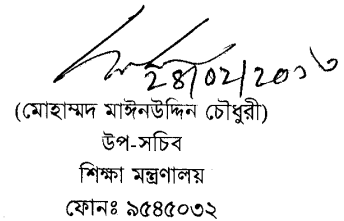 ২৪/০২/২০১৬
(মোহাম্মদ মাঈনউদ্দিন চৌধুরী)
উপ-সচিব
শিক্ষা মন্ত্রণালয়
ফোনঃ ৯৫৪৫০৩২